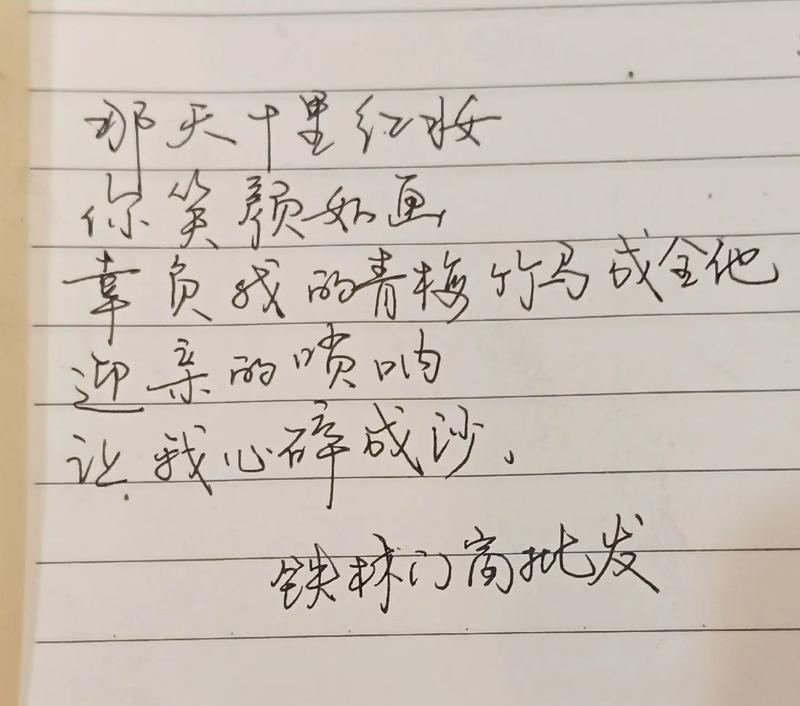 那天十里红妆
你笑颜如画
辜负我的青梅竹马成全他
迎亲的唢呐
让我心碎成沙、
铁林门窗批发